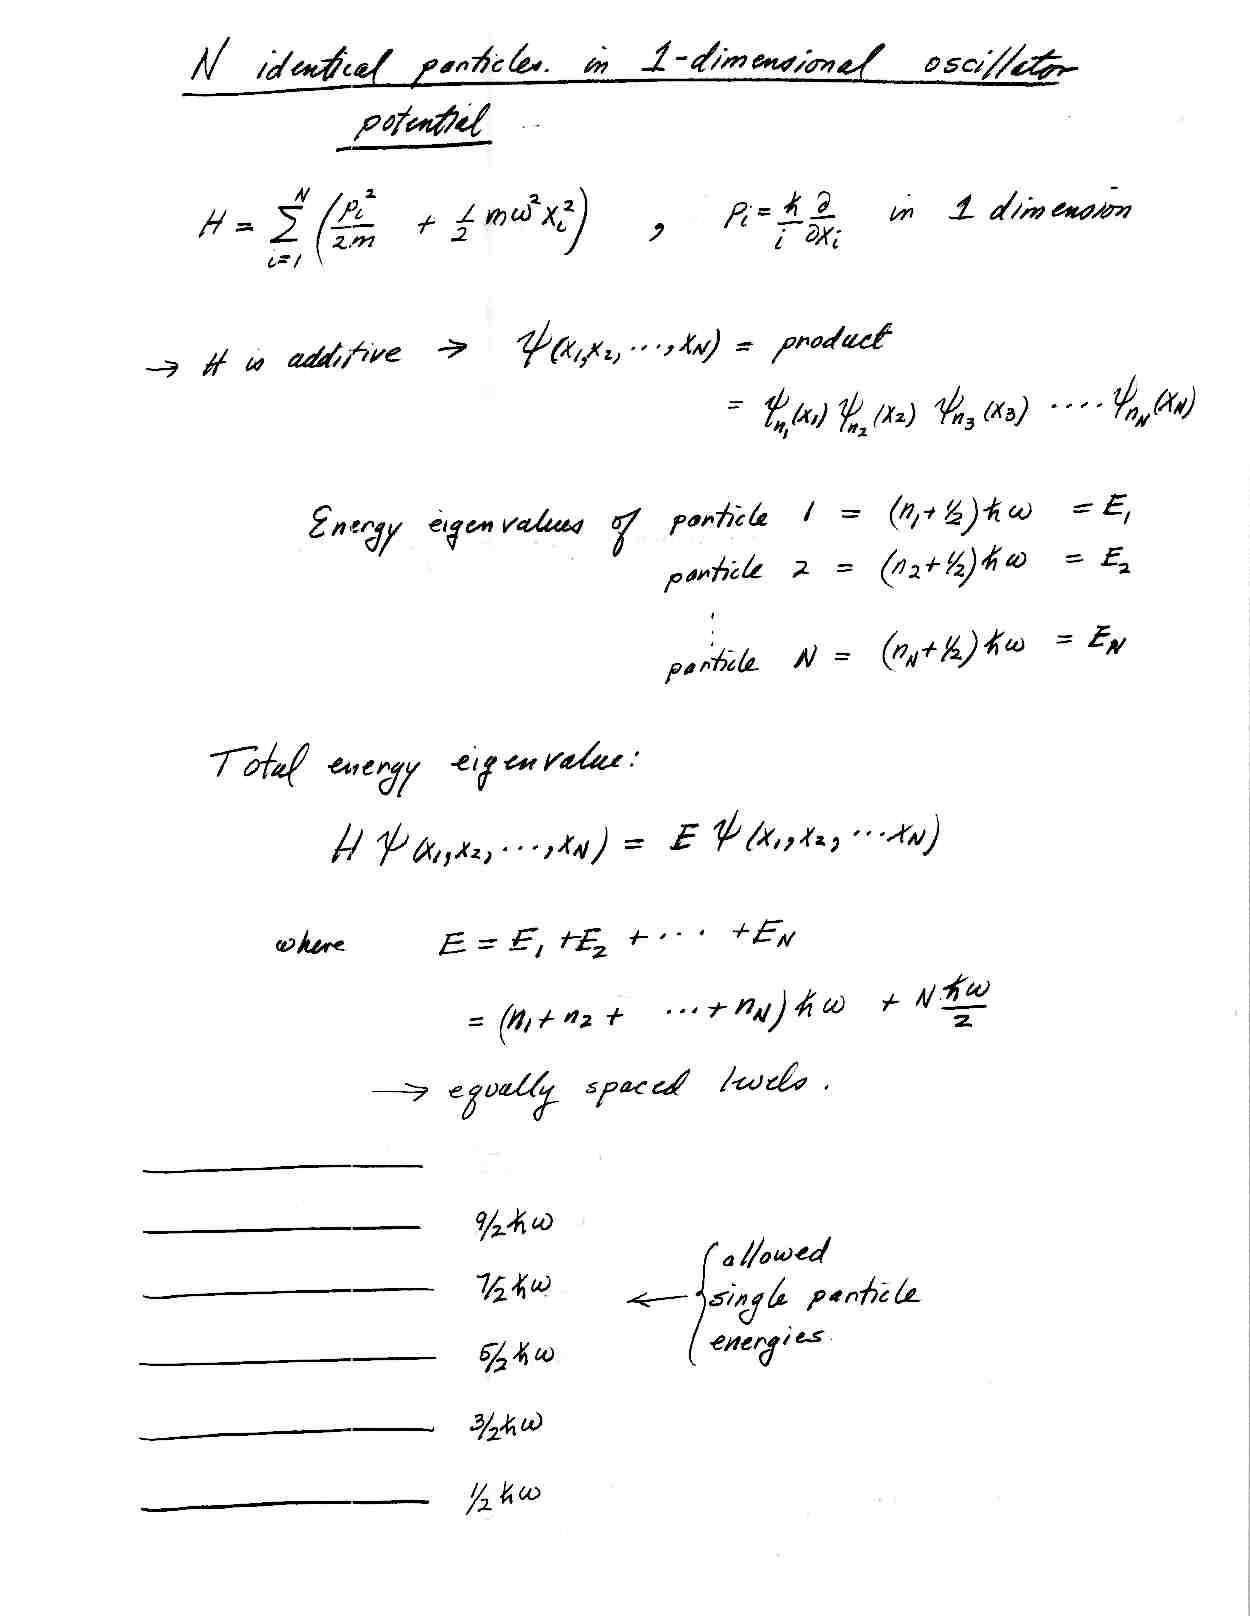 N identical particles. in 1-dimensional oscillator
potential
H = ∑_{i=1}^{N} (p_i²/2m + 1/2 mω²x_i²) , p_i = ħ/i ∂/∂x_i in 1 dimension
→ H is additive → Ψ(x₁,x₂,...,x_N) = product
= ψ_{n₁}(x₁) ψ_{n₂}(x₂) ψ_{n₃}(x₃) .... ψ_{n_N}(x_N)
Energy eigenvalues of particle 1 = (n₁+½)ħω = E₁
particle 2 = (n₂+½)ħω = E₂
⋮
particle N = (n_N+½)ħω = E_N
Total energy eigenvalue:
H Ψ(x₁,x₂,...,x_N) = E Ψ(x₁,x₂,...x_N)
where E = E₁ + E₂ + ... + E_N
= (n₁ + n₂ + ... + n_N) ħω + N ħω/2
→ equally spaced levels.
9/2 ħω
7/2 ħω
5/2 ħω
3/2 ħω
1/2 ħω
← { allowed
single particle
energies.